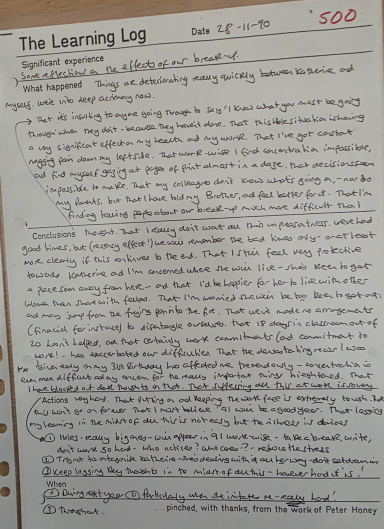 500
The Learning Log Date 28-11-90
Significant experience
Some reflections on the effects of our break-up
What happened Things are deteriorating really quickly between Katherine and
myself. We're into deep acrimony now.
→ That it's insulting to anyone going through to say 'I know what you must be going
through' when they don't - because they haven't done. That this whole situation is having
a very significant effect on my health and my work. That I've got constant
nagging pain down my left side. That work-wise I find concentration impossible,
and find myself gazing at pages of print almost in a daze, that decisions seem
impossible to make. That my colleagues don't know what's going on, - nor do
my parents, but that I have told my Brother, and feel better for it. That I'm
finding telling people about our break-up much more difficult than I
Conclusions thought. That I really don't want all this unpleasantness. We've had
good times, but (recency effect!) we will remember the bad times only - or at least
more clearly if this continues to the end. That I still feel very protective
towards Katherine and I'm concerned where she will live - she's keen to get
a place soon away from here - and that I'd be happier for her to live with other
women than share with fellas. That I'm worried she will be too keen to get out
and may jump from the frying pan to the fire. That we've made no arrangements
(financial for instance) to disentangle ourselves. That 18 days in classroom out of
20 hasn't helped, and that certainly work commitments (and commitment to
work! - has exacerbated our difficulties. That the devastating news I was
given early on my 31st Birthday has affected me tremendously - concentration is
even more difficult on any even the really important things in hand. That
I have blocked out dark thoughts on that. That suffering all this at work is very
Actions very hard. That putting on and keeping the work face is extremely tough. That
this won't go on forever. That I must believe '91 will be a good year. That logging
my learning in the midst of all this is not easy but the richness is obvious
① Holes - really big ones - will appear in 91 work-wise - take a break, write,
don't work so hard - who notices? - who cares? - reduce the stress
② Try not to antagonise Katherine - 
③ Keep logging key thoughts in the midst of all this - however hard it is!
When
① During next year ② Particularly when she irritates me - really hard!
③ Throughout. ....pinched, with thanks, from the work of Peter Honey